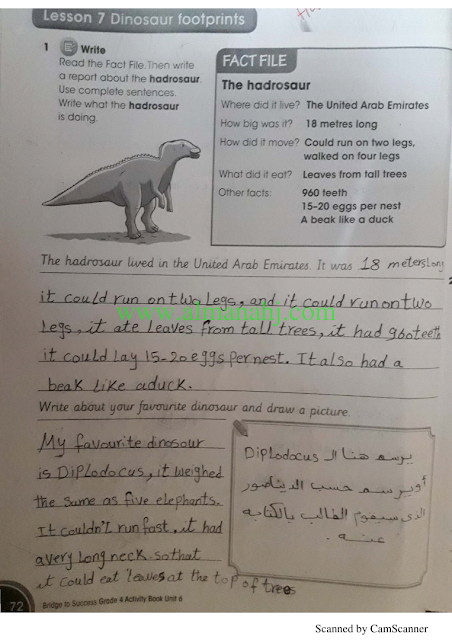 Lesson 7 Dinosaur footprints
1 Write
Read the Fact File. Then write
a report about the hadrosaur.
Use complete sentences.
Write what the hadrosaur
is doing.
FACT FILE
The hadrosaur
Where did it live? The United Arab Emirates
How big was it? 18 metres long
How did it move? Could run on two legs,
walked on four legs
What did it eat? Leaves from tall trees
Other facts: 960 teeth
15-20 eggs per nest
A beak like a duck
The hadrosaur lived in the United Arab Emirates. It was 18 meters long
it could run on two legs, and it could run on two
www.almanahj.com
legs, it ate leaves from tall trees, it had 960 teeth
it could lay 15-20 eggs per nest. It also had a
beak like a duck.
Write about your favourite dinosaur and draw a picture.
My favourite dinosour
is Diplodocus, it weighed
the same as five elephants.
It couldn't run fast, it had
a very long neck so that
it could eat leaves at the top of trees
يرسم هنا الـ Diplodocus
أو يرسم حسب الديناصور
الذي سيقوم الطالب بالكتابه
عنه .
72 Bridge to Success Grade 4 Activity Book Unit 6
Scanned by CamScanner